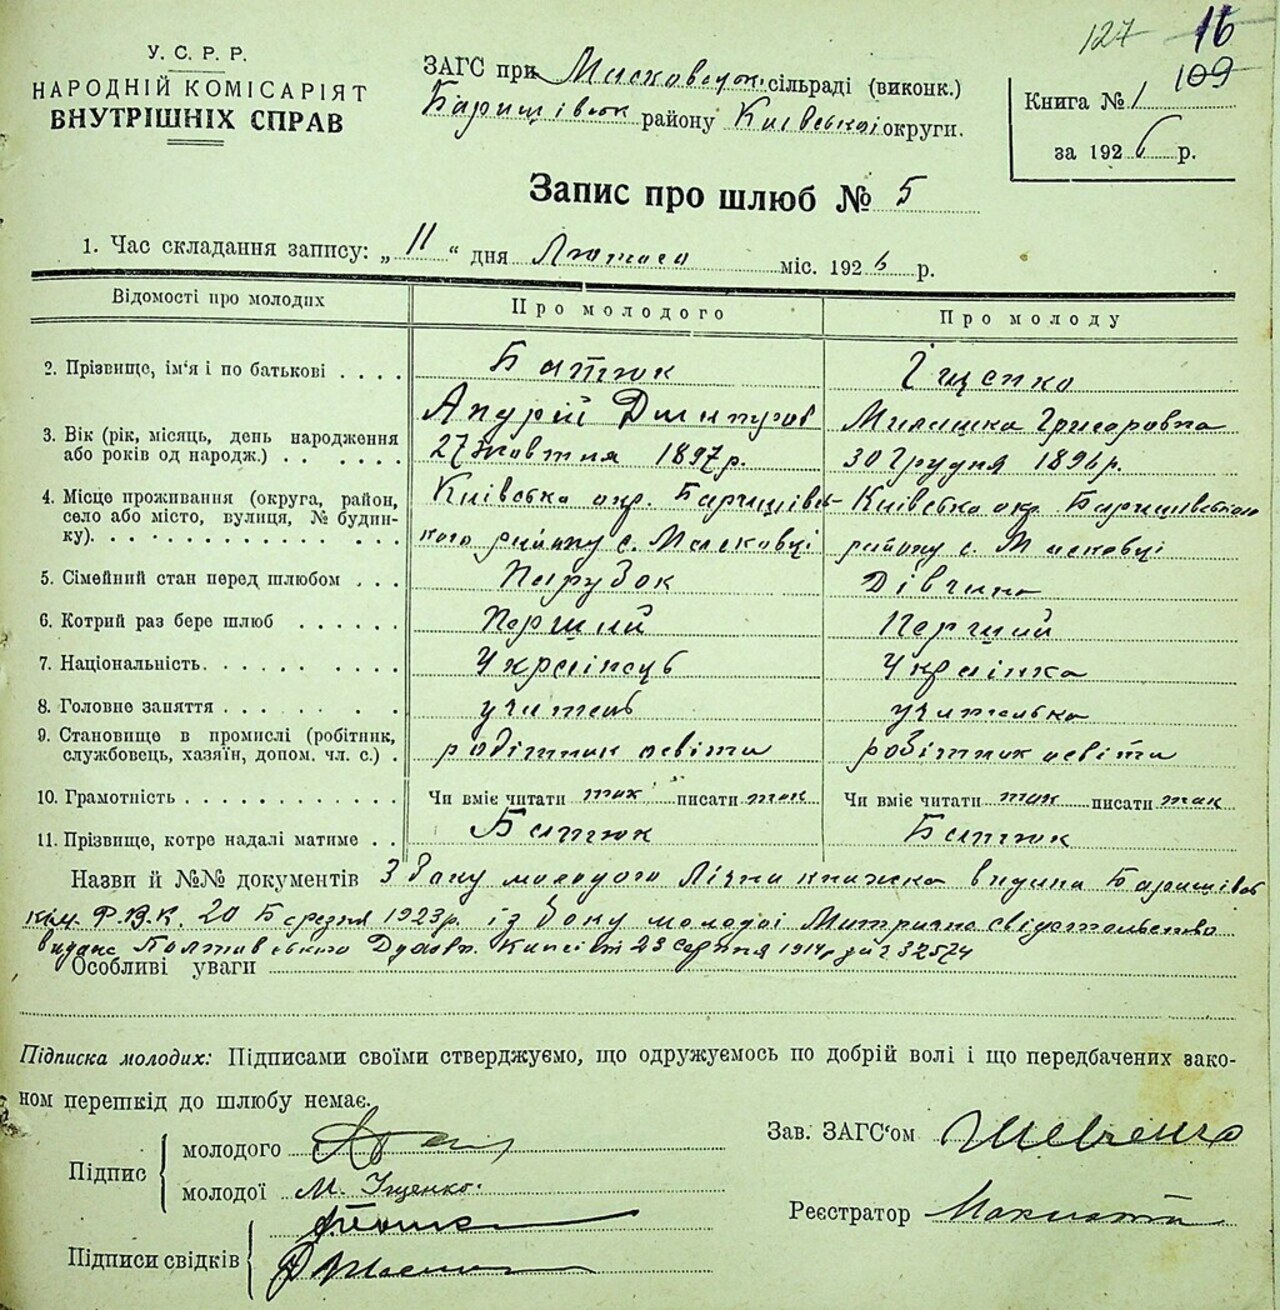 127 16
109
У. С. Р. Р.
НАРОДНІЙ КОМІСАРІЯТ
ВНУТРІШНІХ СПРАВ
ЗАГС при сільраді (виконк.)
Баришівськ району Київської округи.
Книга № 1
за 1926 р.
Запис про шлюб № 5
1. Час складання запису: „11“ дня Лютого міс. 1926 р.
Відомості про молодих
Про молодого
Про молоду
2. Прізвище, ім‘я і по батькові . . . .
Батюк
Андрій Дмитров
Іщенко
Мелашка Григоровна
3. Вік (рік, місяць, день народження
або років од народж.) . . . . . .
27 Жовтня 1897 р.
30 Грудня 1896 р.
4. Місце проживання (округа, район,
село або місто, вулиця, № будин-
ку). . . . . . . . . . . . . . .
Київська окр. Баришівсь-
кого району с. Масковці
Київська окр. Баришівського
району с. Масковці
5. Сімейний стан перед шлюбом . . .
Парубок
Дівчина
6. Котрий раз бере шлюб . . . . . .
Перший
Перший
7. Національність. . . . . . . . . .
Українець
Українка
8. Головне заняття . . . . . . . .
учитель
учителька
9. Становище в промислі (робітник,
службовець, хазяїн, допом. чл. с.) .
робітник освіти
робітник освіти
10. Грамотність . . . . . . . . . . . .
Чи вміє читати так писати так
Чи вміє читати так писати так
11. Прізвище, котре надалі матиме . .
Батюк
Батюк
Назви й №№ документів З боку молодого Лічна книжка видана Баришівсь
ким Р.В.К. 20 Березня 1923 р. із боку молодої Метричне свідотельство
видане Полтавською Духовн. Консіст 23 серпня 1914 р за № 32574
Особливі уваги
Підписка молодих: Підписами своїми стверджуємо, що одружуємось по добрій волі і що передбачених зако-
ном перешкід до шлюбу немає.
Підпис
молодого
молодої М. Іщенко.
Підписи свідків
Зав. ЗАГС‘ом Шевченко
Реєстратор